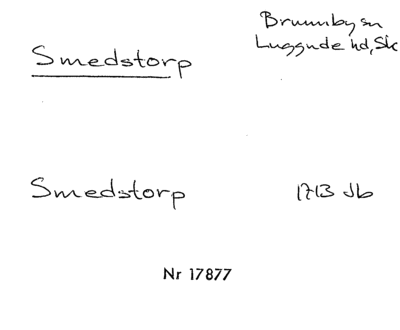 Smedstorp
Brunnby sn
Luggude hd, Sk
Smedstorp
1713 Jb
Nr 17877